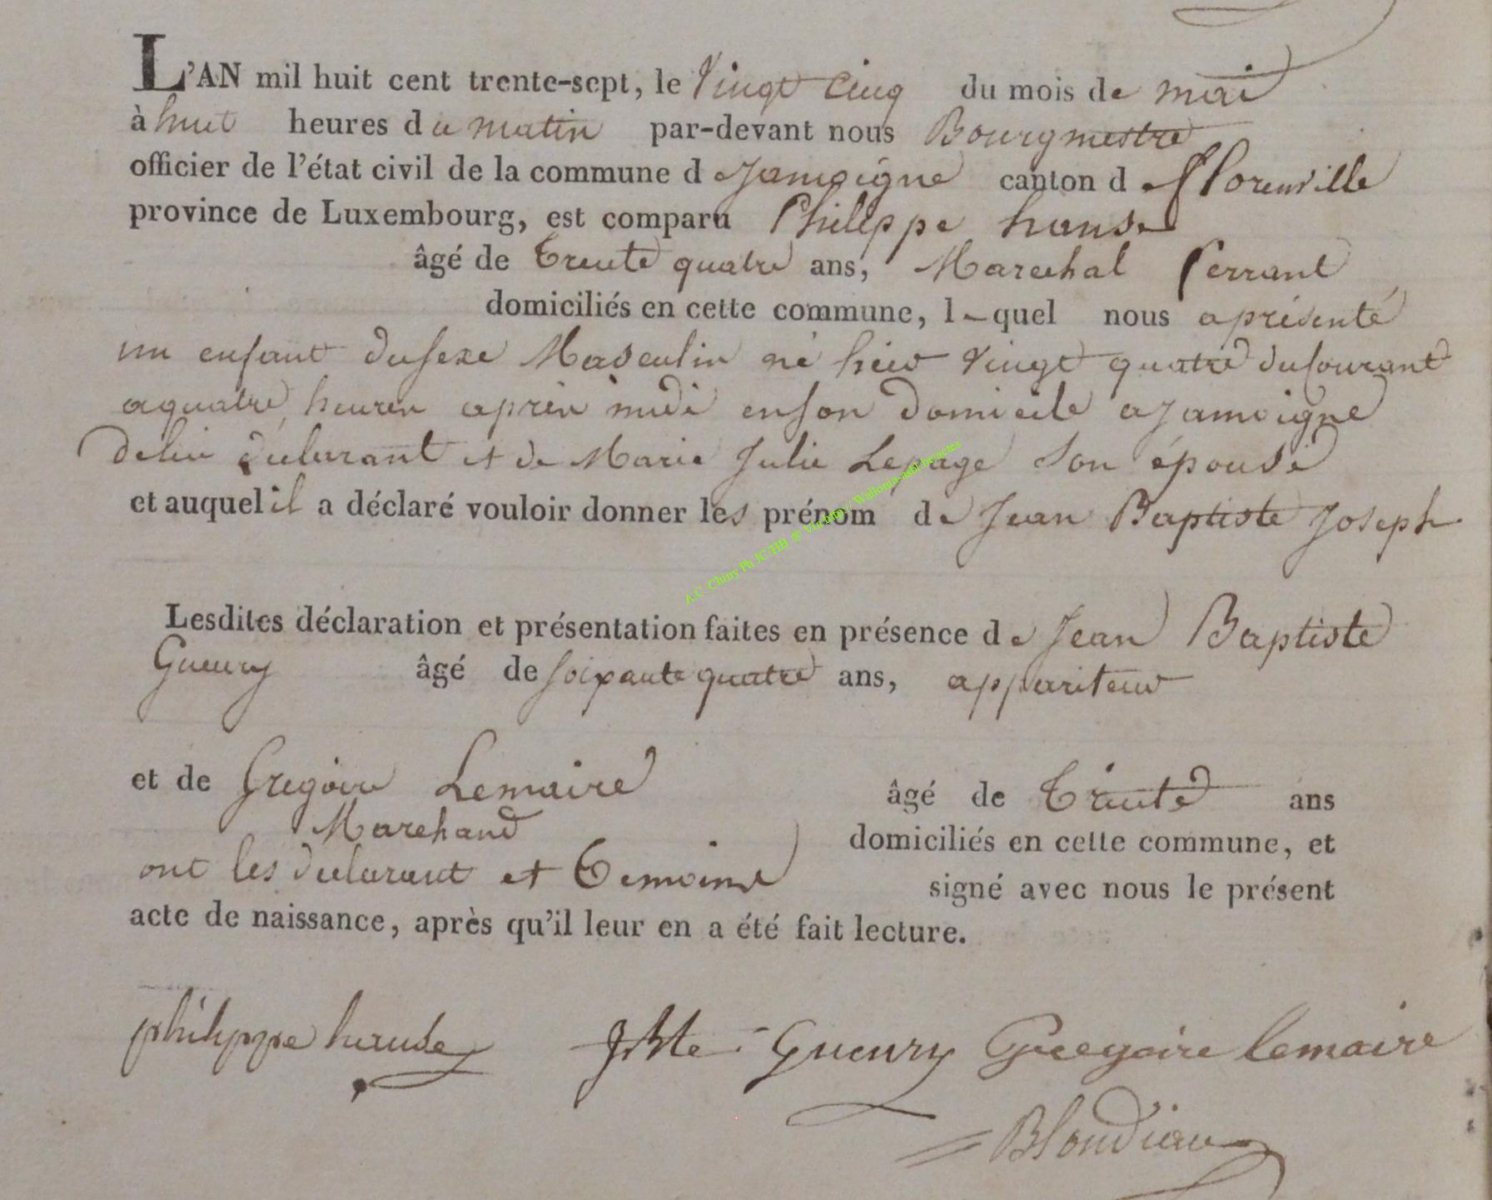 L'AN mil huit cent trente-sept, le Vingt Cinq du mois de mai
à huit heures du matin par-devant nous Bourgmestre
officier de l'état civil de la commune de Jamoigne canton de florenville
province de Luxembourg, est comparu Philippe hanse
âgé de trente quatre ans, Marechal ferrant
domiciliés en cette commune, lequel nous aprésenté
un enfant dusexe Masculin né hier vingt quatre ducourant
aquatre heures aprés midi enson domicile a jamoigne
delui déclarant et de Marie Julie Lepage son épouse
et auquel il a déclaré vouloir donner les prénom de Jean Baptiste Joseph
Lesdites déclaration et présentation faites en présence de Jean Baptiste
Gueury âgé de soixante quatre ans, appariteur
et de Gregoire Lemaire âgé de Trente ans
Marchand domiciliés en cette commune, et
ont les déclarant et Temoins signé avec nous le présent
acte de naissance, après qu'il leur en a été fait lecture.
philippe hanse JBte Gueury Gregoire lemaire
Blondiau